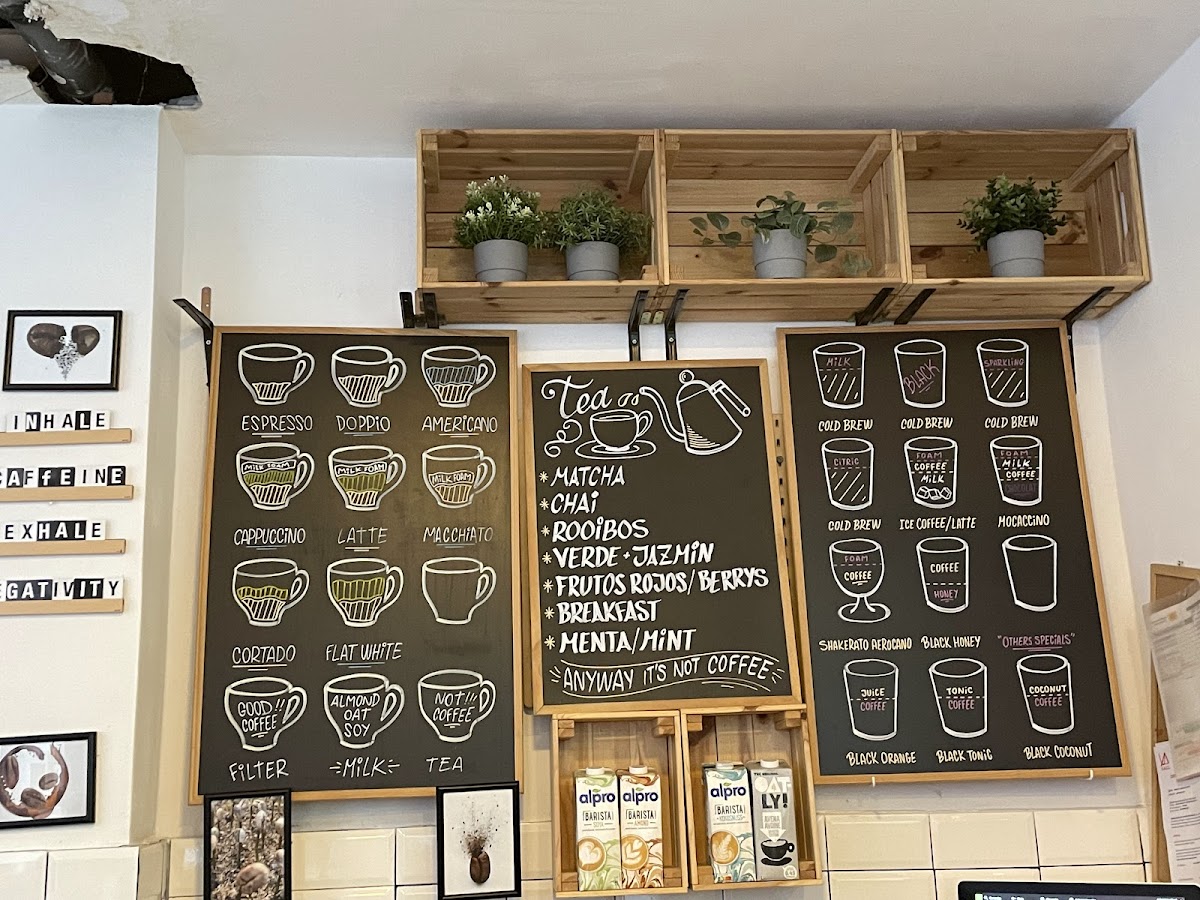 INHALE
CAFFEINE
EXHALE
EGATIVITY
ESPRESSO
DOPPiO
AMERICANO
MILK FOAM
MILK FOAM
MILK FOAM
CAPPUCCiNO
LATTE
MACCHiATO
CORTADO
FLAT WHiTE
GOOD!!
COFFEE
ALMOND
OAT
SOY
NOT!!!
COFFEE
FiLTER
MiLK
TEA
Tea
* MATCHA
* CHAi
* ROOiBOS
* VERDE + JAZMiN
* FRUTOS ROJOS/BERRYS
* BREAKFAST
* MENTA/MiNT
ANYWAY IT'S NOT COFFEE
alpro
BARISTA
alpro
BARISTA
alpro
BARISTA
OAT
LY!
MiLK
BLACK
SPARKLING
COLD BREW
COLD BREW
COLD BREW
CiTRIC
FOAM
COFFEE
MiLK
FOAM
MiLK
COFFEE
CHOCOLAT
COLD BREW
ICE COFFEE/LATTE
MOCACCiNO
FOAM
COFFEE
COFFEE
HONEY
SHAKERATO AEROCANO
BLACK HONEY
"OTHERS SPECiALS"
JUiCE
COFFEE
TONiC
COFFEE
COCONUT
COFFEE
BLACK ORANGE
BLACK TONiC
BLACK COCONUT